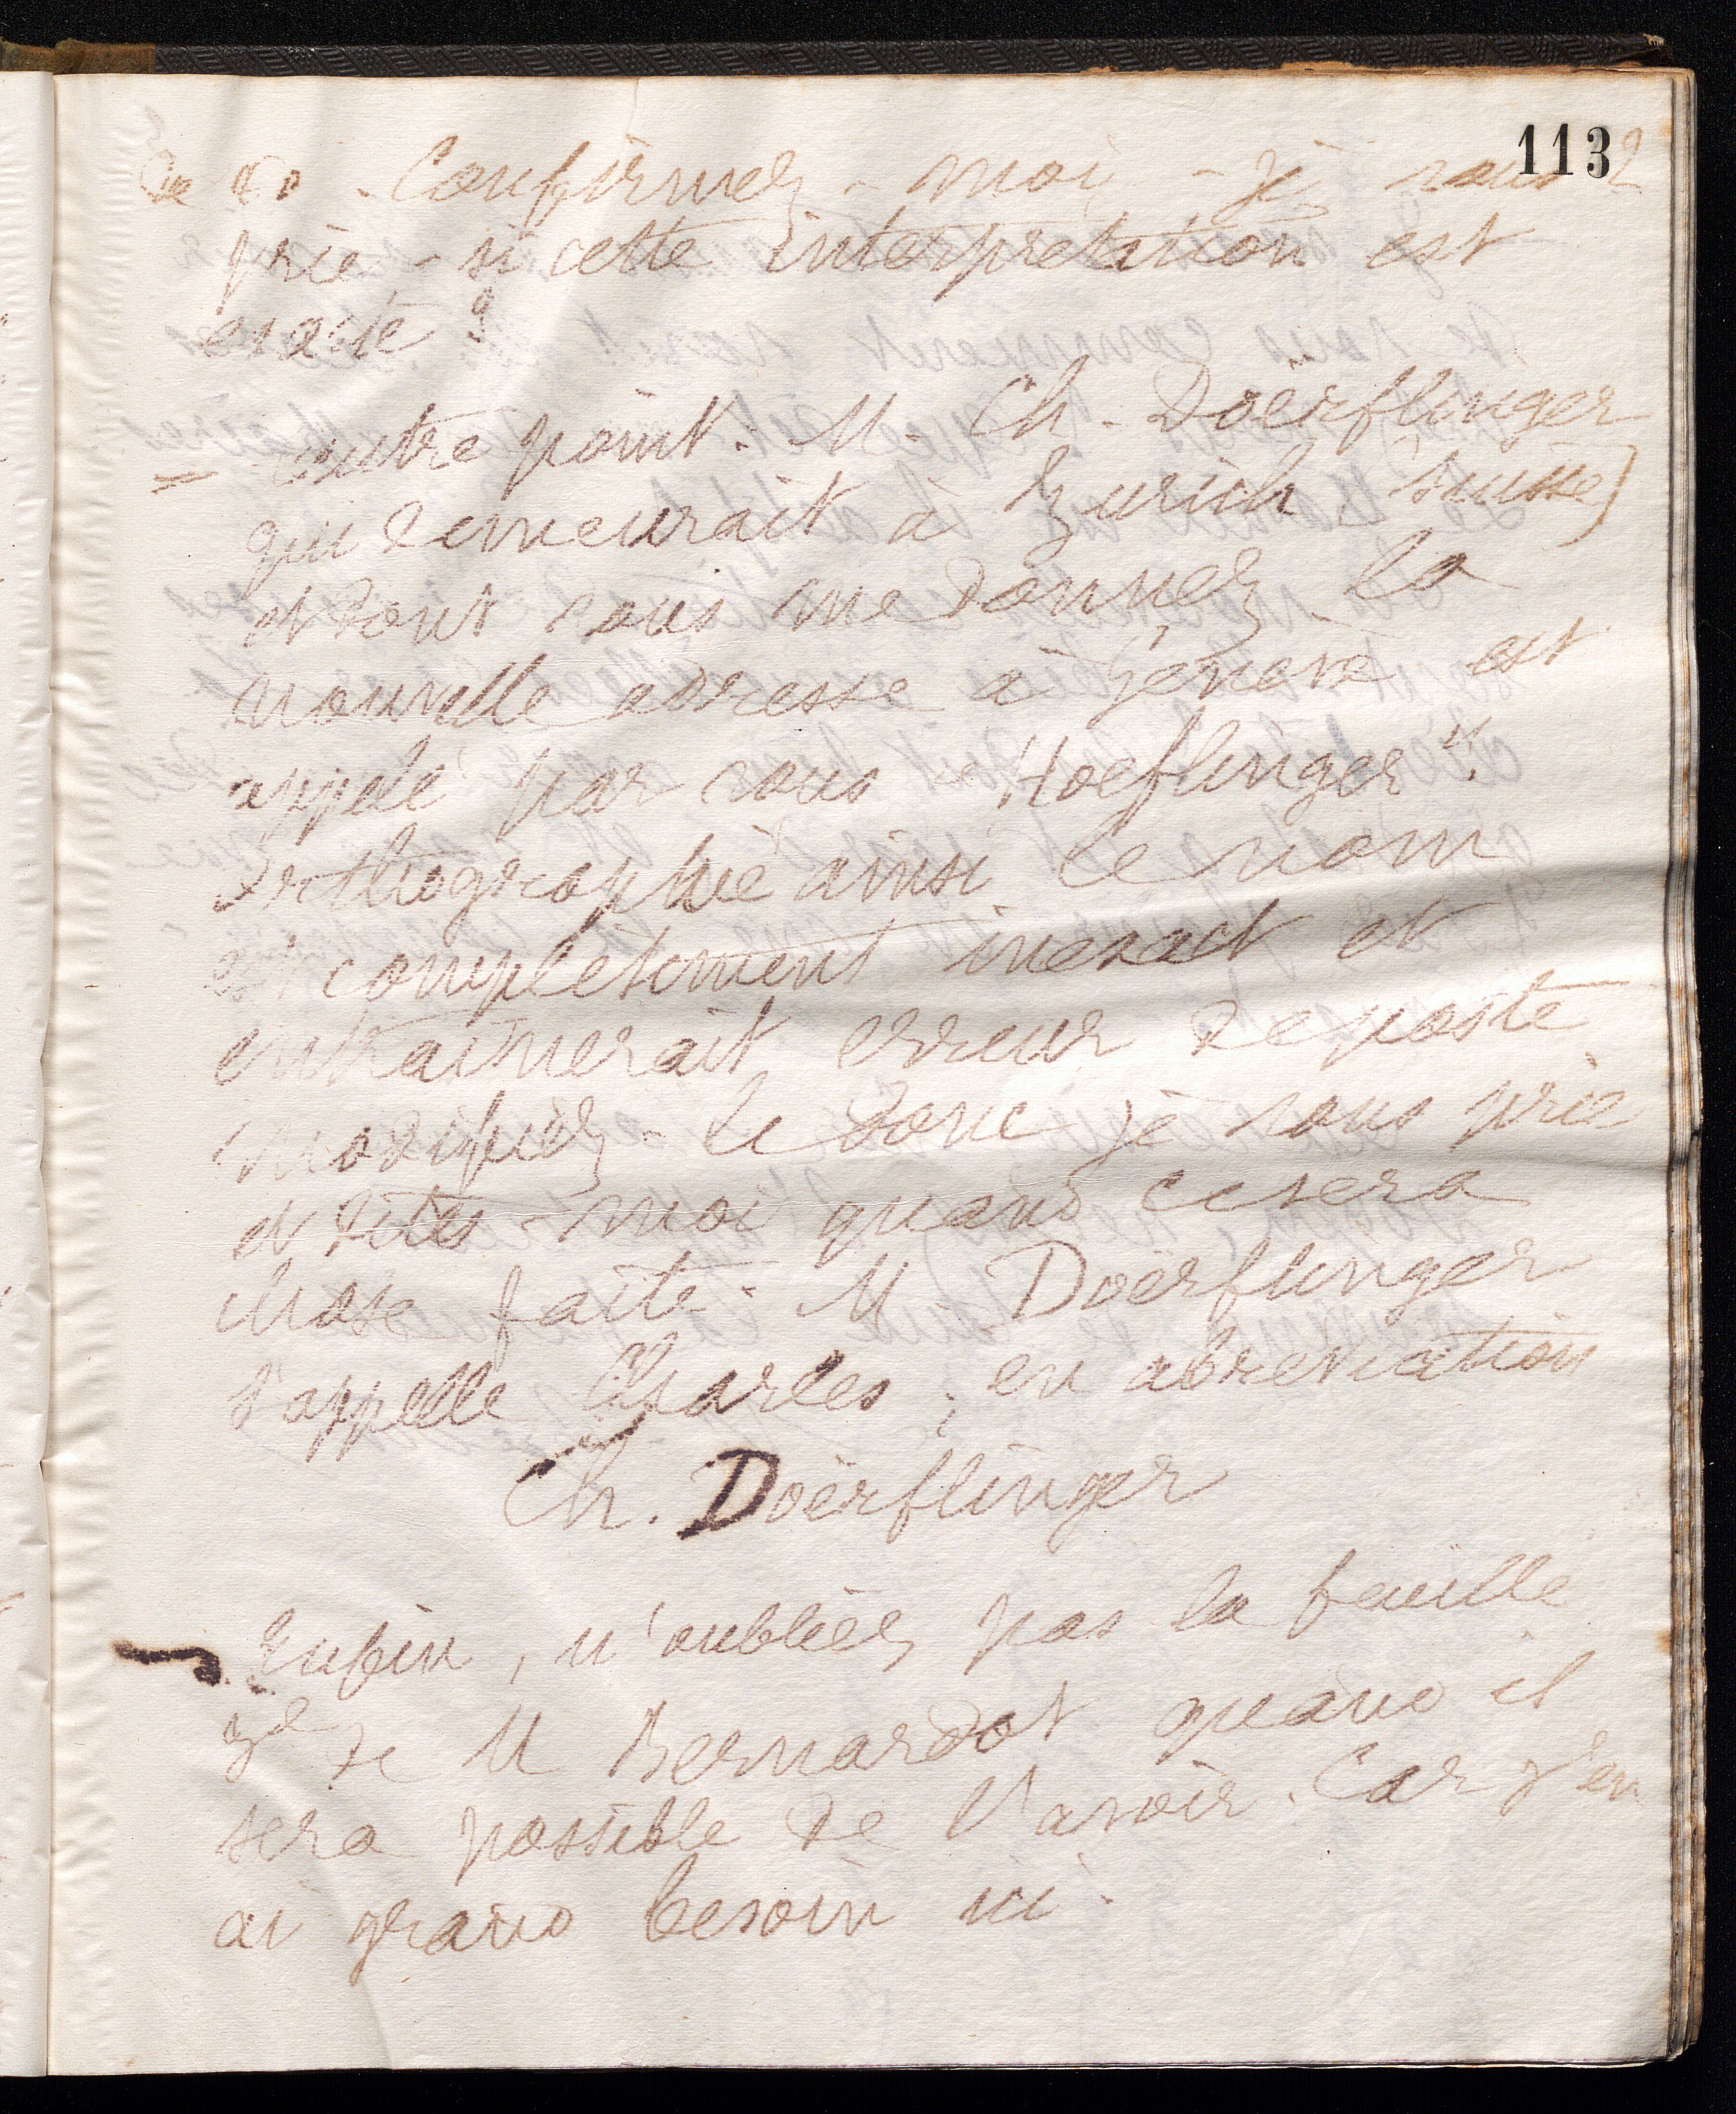 113 2
Confirmez-moi - je vous
prie, - si cette interprétation est
exacte ?
= autre point. M. Ch. Doërflinger
qui demeurait à Zurich (Suisse)
et dont vous me donnez la
nouvelle adresse à Genève est
appelé par vous "Hoeflinger".
Orthographié ainsi le nom
est complètement inexact et
entrainerait erreur de poste
modifiez-le donc je vous prie
et dites-moi quand ce sera
chose faite. M. Doërflinger
s'appelle Charles ; en abreviation
Ch. Doërflinger
Enfin, n'oubliez pas la feuille
de M Bernardot quand il
sera possible de l'avoir. Car j'en
ai grand besoin ici.